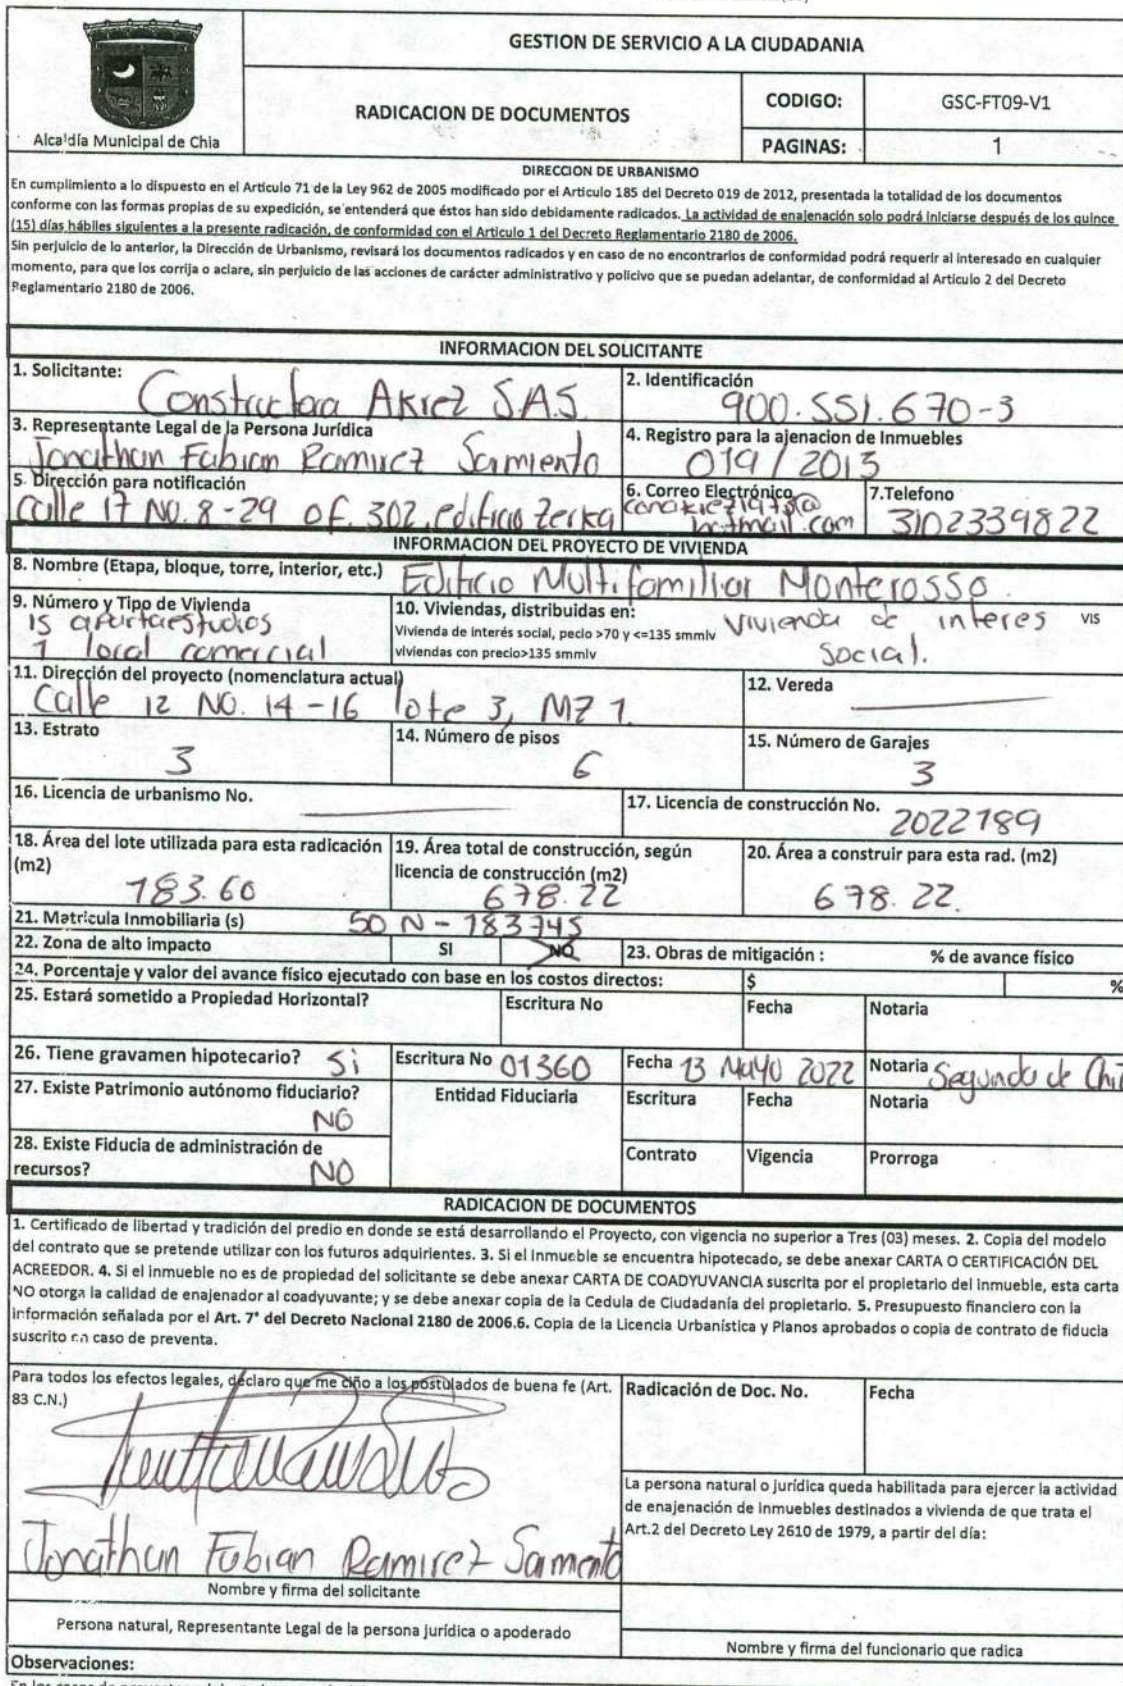 GESTION DE SERVICIO A LA CIUDADANIA
Alcaldía Municipal de Chia
RADICACION DE DOCUMENTOS
CODIGO: GSC-FT09-V1
PAGINAS: 1
DIRECCION DE URBANISMO
En cumplimiento a lo dispuesto en el Artículo 71 de la Ley 962 de 2005 modificado por el Artículo 185 del Decreto 019 de 2012, presentada la totalidad de los documentos
conforme con las formas propias de su expedición, se entenderá que éstos han sido debidamente radicados. La actividad de enajenación solo podrá iniciarse después de los quince
(15) días hábiles siguientes a la presente radicación, de conformidad con el Artículo 1 del Decreto Reglamentario 2180 de 2006.
Sin perjuicio de lo anterior, la Dirección de Urbanismo, revisará los documentos radicados y en caso de no encontrarlos de conformidad podrá requerir al interesado en cualquier
momento, para que los corrija o aclare, sin perjuicio de las acciones de carácter administrativo y policivo que se puedan adelantar, de conformidad al Artículo 2 del Decreto
Reglamentario 2180 de 2006.
INFORMACION DEL SOLICITANTE
1. Solicitante: Constructora Akrez S.A.S.
2. Identificación 900.551.670-3
3. Representante Legal de la Persona Jurídica Jonathan Fabian Ramirez Sarmiento
4. Registro para la ajenacion de Inmuebles 019 / 2013
5. Dirección para notificación Calle 17 No. 8-29 of. 302, edificio Zerka
6. Correo Electrónico hotmail.com
7.Telefono 3102339822
INFORMACION DEL PROYECTO DE VIVIENDA
8. Nombre (Etapa, bloque, torre, interior, etc.) Edificio Multifamiliar Monterosso.
9. Número y Tipo de Vivienda
15 apartaestudios
1 local comercial
10. Viviendas, distribuidas en:
Vivienda de interés social, pecio >70 y <=135 smmlv
viviendas con precio>135 smmlv
vivienda de interes VIS
social.
11. Dirección del proyecto (nomenclatura actual)
Calle 12 No. 14-16 lote 3, MZ 1.
12. Vereda
13. Estrato 3
14. Número de pisos 6
15. Número de Garajes 3
16. Licencia de urbanismo No.
17. Licencia de construcción No. 2022189
18. Área del lote utilizada para esta radicación
(m2) 183.60
19. Área total de construcción, según
licencia de construcción (m2) 678.22
20. Área a construir para esta rad. (m2) 678.22.
21. Matrícula Inmobiliaria (s) 50 N - 183745
22. Zona de alto impacto SI NO
23. Obras de mitigación : % de avance físico
24. Porcentaje y valor del avance físico ejecutado con base en los costos directos: $ %
25. Estará sometido a Propiedad Horizontal? Escritura No Fecha Notaria
26. Tiene gravamen hipotecario? Si Escritura No 01360 Fecha 13 Mayo 2022 Notaria Segunda de Chi
27. Existe Patrimonio autónomo fiduciario? NO
Entidad Fiduciaria Escritura Fecha Notaria
28. Existe Fiducia de administración de
recursos? NO
Contrato Vigencia Prorroga
RADICACION DE DOCUMENTOS
1. Certificado de libertad y tradición del predio en donde se está desarrollando el Proyecto, con vigencia no superior a Tres (03) meses. 2. Copia del modelo
del contrato que se pretende utilizar con los futuros adquirientes. 3. Si el inmueble se encuentra hipotecado, se debe anexar CARTA O CERTIFICACIÓN DEL
ACREEDOR. 4. Si el inmueble no es de propiedad del solicitante se debe anexar CARTA DE COADYUVANCIA suscrita por el propietario del inmueble, esta carta
NO otorga la calidad de enajenador al coadyuvante; y se debe anexar copia de la Cedula de Ciudadanía del propietario. 5. Presupuesto financiero con la
información señalada por el Art. 7° del Decreto Nacional 2180 de 2006.6. Copia de la Licencia Urbanística y Planos aprobados o copia de contrato de fiducia
suscrito en caso de preventa.
Para todos los efectos legales, declaro que me ciño a los postulados de buena fe (Art.
83 C.N.)
Radicación de Doc. No. Fecha
La persona natural o jurídica queda habilitada para ejercer la actividad
de enajenación de inmuebles destinados a vivienda de que trata el
Art.2 del Decreto Ley 2610 de 1979, a partir del día:
Jonathan Fabian Ramirez Sarmiento
Nombre y firma del solicitante
Persona natural, Representante Legal de la persona jurídica o apoderado
Nombre y firma del funcionario que radica
Observaciones: